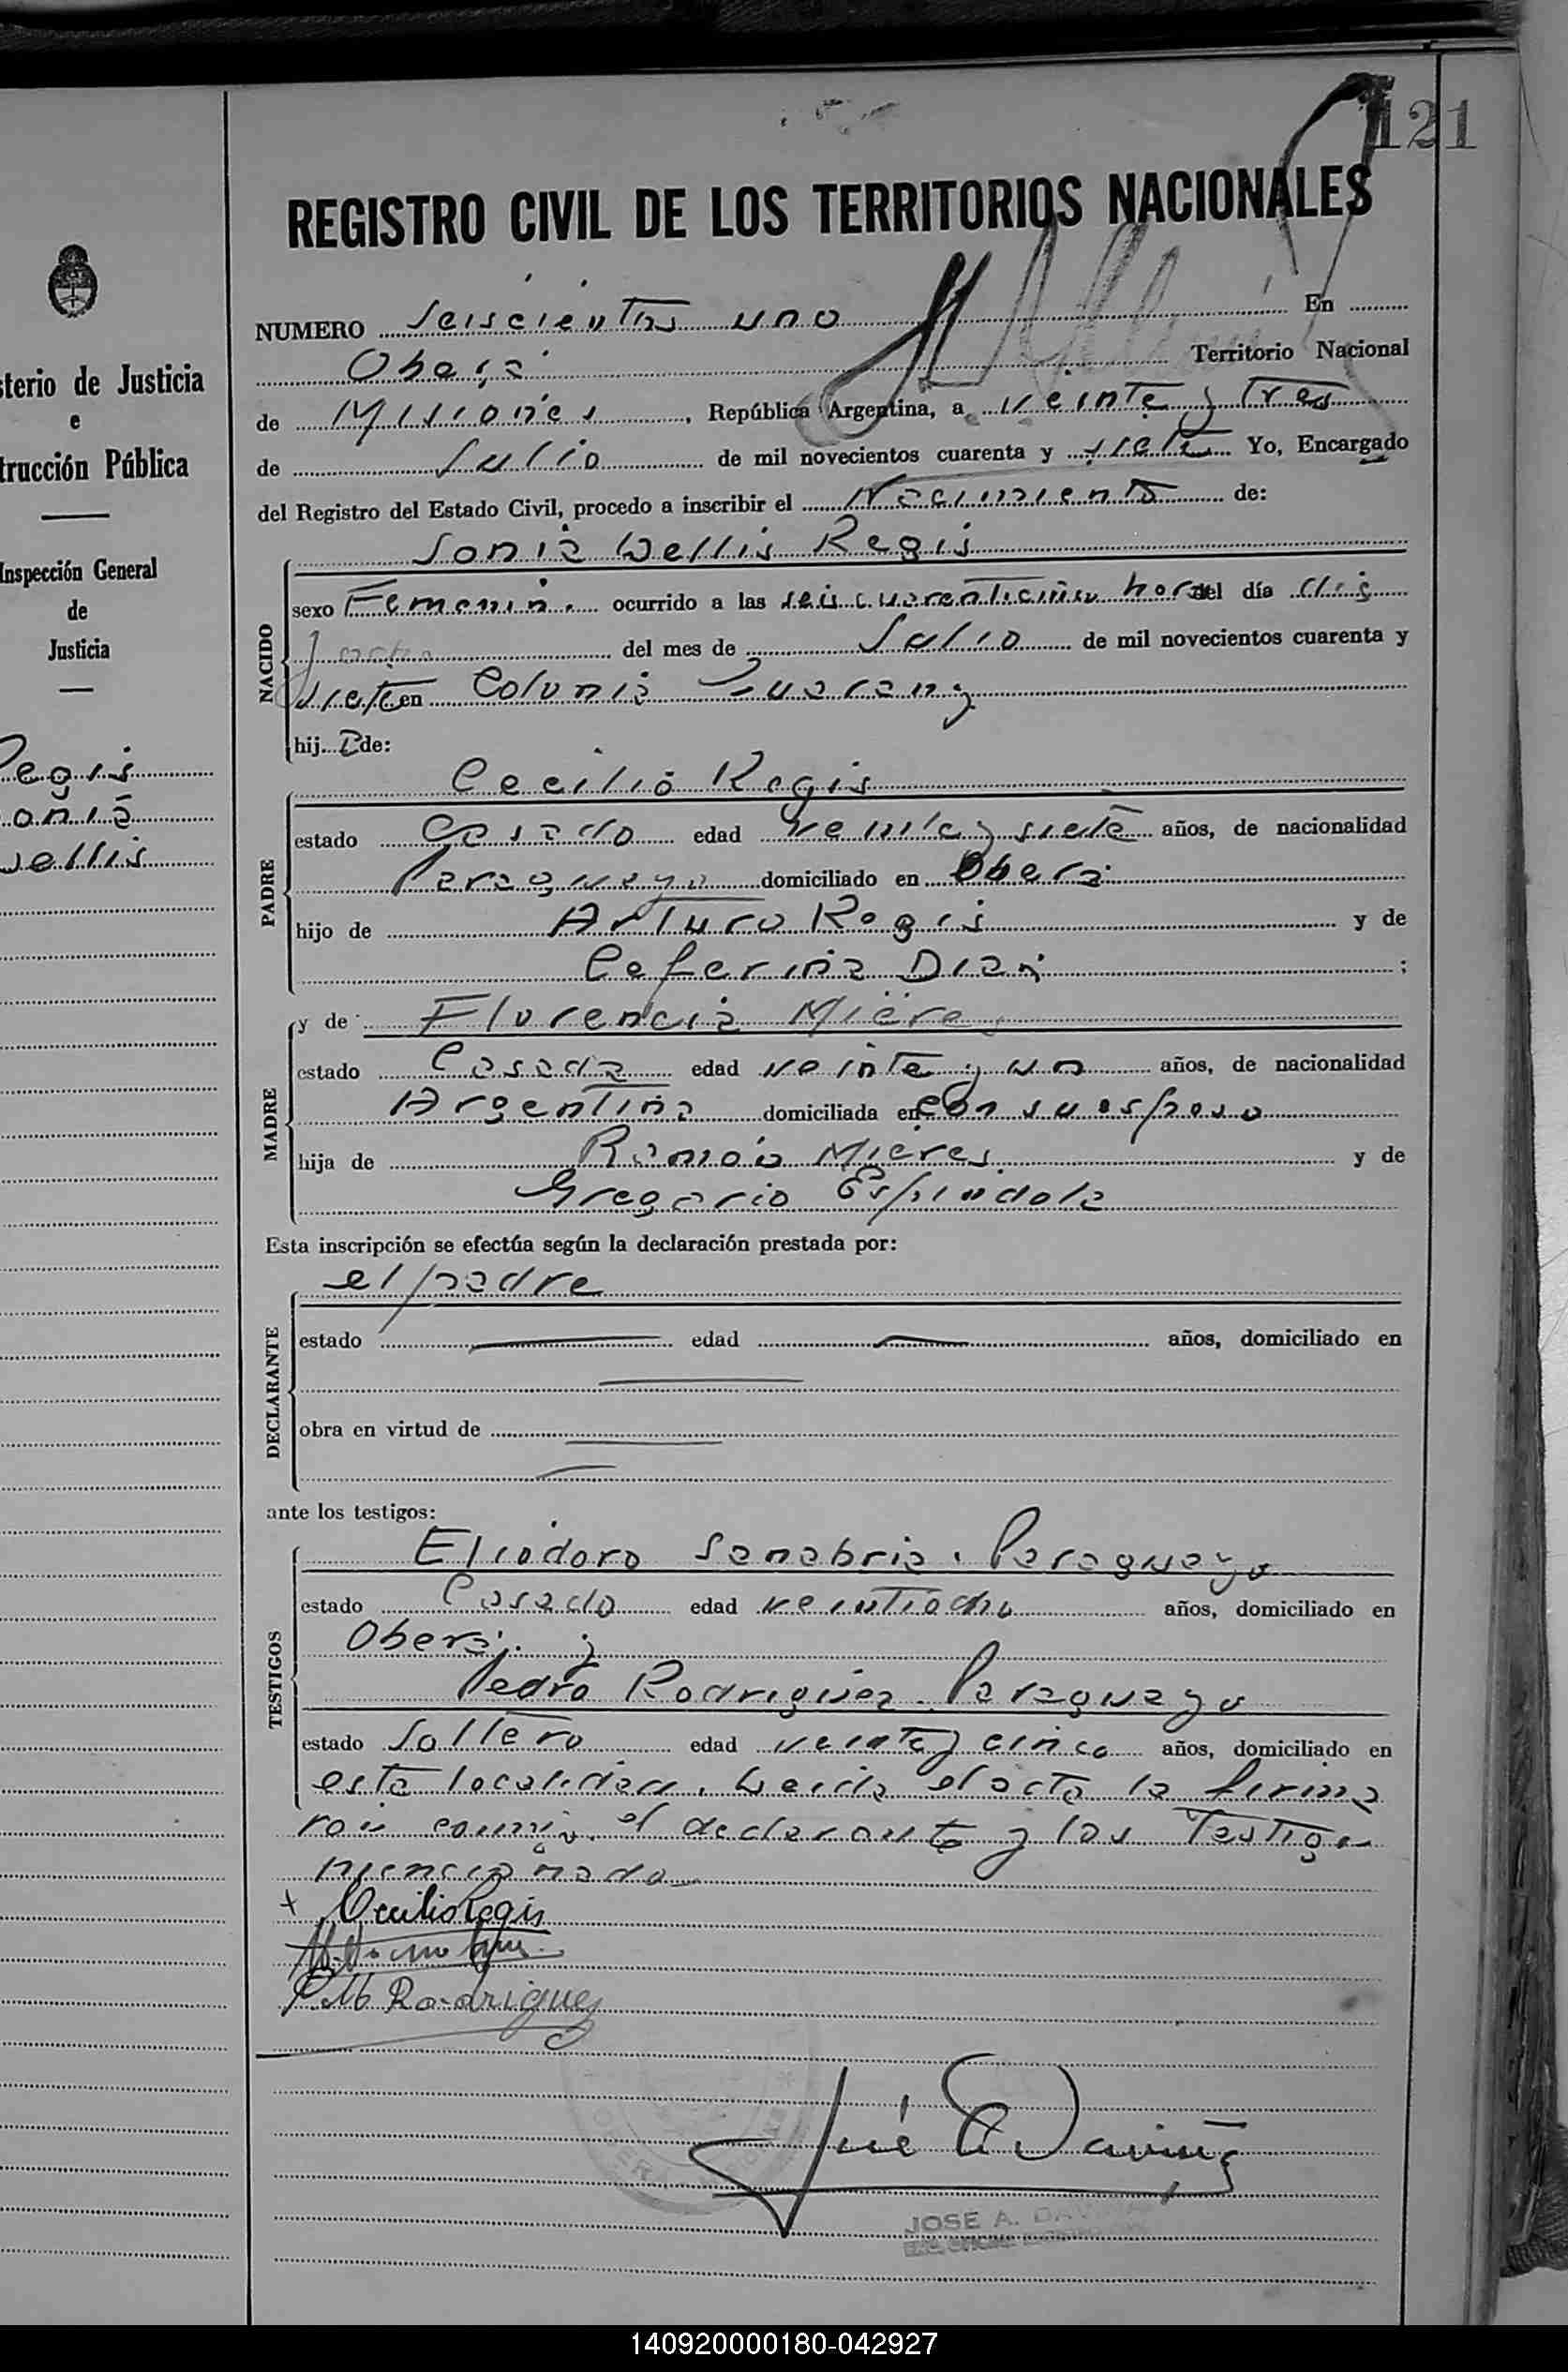 121
REGISTRO CIVIL DE LOS TERRITORIOS NACIONALES
NUMERO Seiscientos uno En
Oberá Territorio Nacional
de Misiones, República Argentina, a veinte y tres
de Julio de mil novecientos cuarenta y siete Yo, Encargado
del Registro del Estado Civil, procedo a inscribir el Nacimiento de:
Sonia Wellis Regis
NACIDO
sexo Femenin. ocurrido a las seis cuarenticinco horas del día dies
del mes de Julio de mil novecientos cuarenta y
siete en Colonia Guarany
hij a de:
Cecilio Regis
PADRE
estado Casado edad veinte y siete años, de nacionalidad
Paraguayo domiciliado en Oberá
hijo de Arturo Regis y de
Ceferina Dian ;
MADRE
y de Florencia Mieres
estado Casada edad veinte y un años, de nacionalidad
Argentina domiciliada en con su esposo
hija de Ramón Mieres y de
Gregorio Espindola
Esta inscripción se efectúa según la declaración prestada por:
el padre
DECLARANTE
estado edad años, domiciliado en
obra en virtud de
ante los testigos:
TESTIGOS
Eliodoro Sanabria. Paraguayo
estado Casado edad veintiocho años, domiciliado en
Oberá. y
Pedro Rodriguez. Paraguayo
estado Soltero edad veinte y cinco años, domiciliado en
esta localidad. Leida el acta la firma
ron conmigo el declarante y los Testigos
mencionado
x Cecilio Regis
P.M Rodriguez
José A Daviña
JOSE A. DAVIÑA
OBERA
sterio de Justicia
e
trucción Pública
Inspección General
de
Justicia
Regis
onia
wellis
140920000180-042927